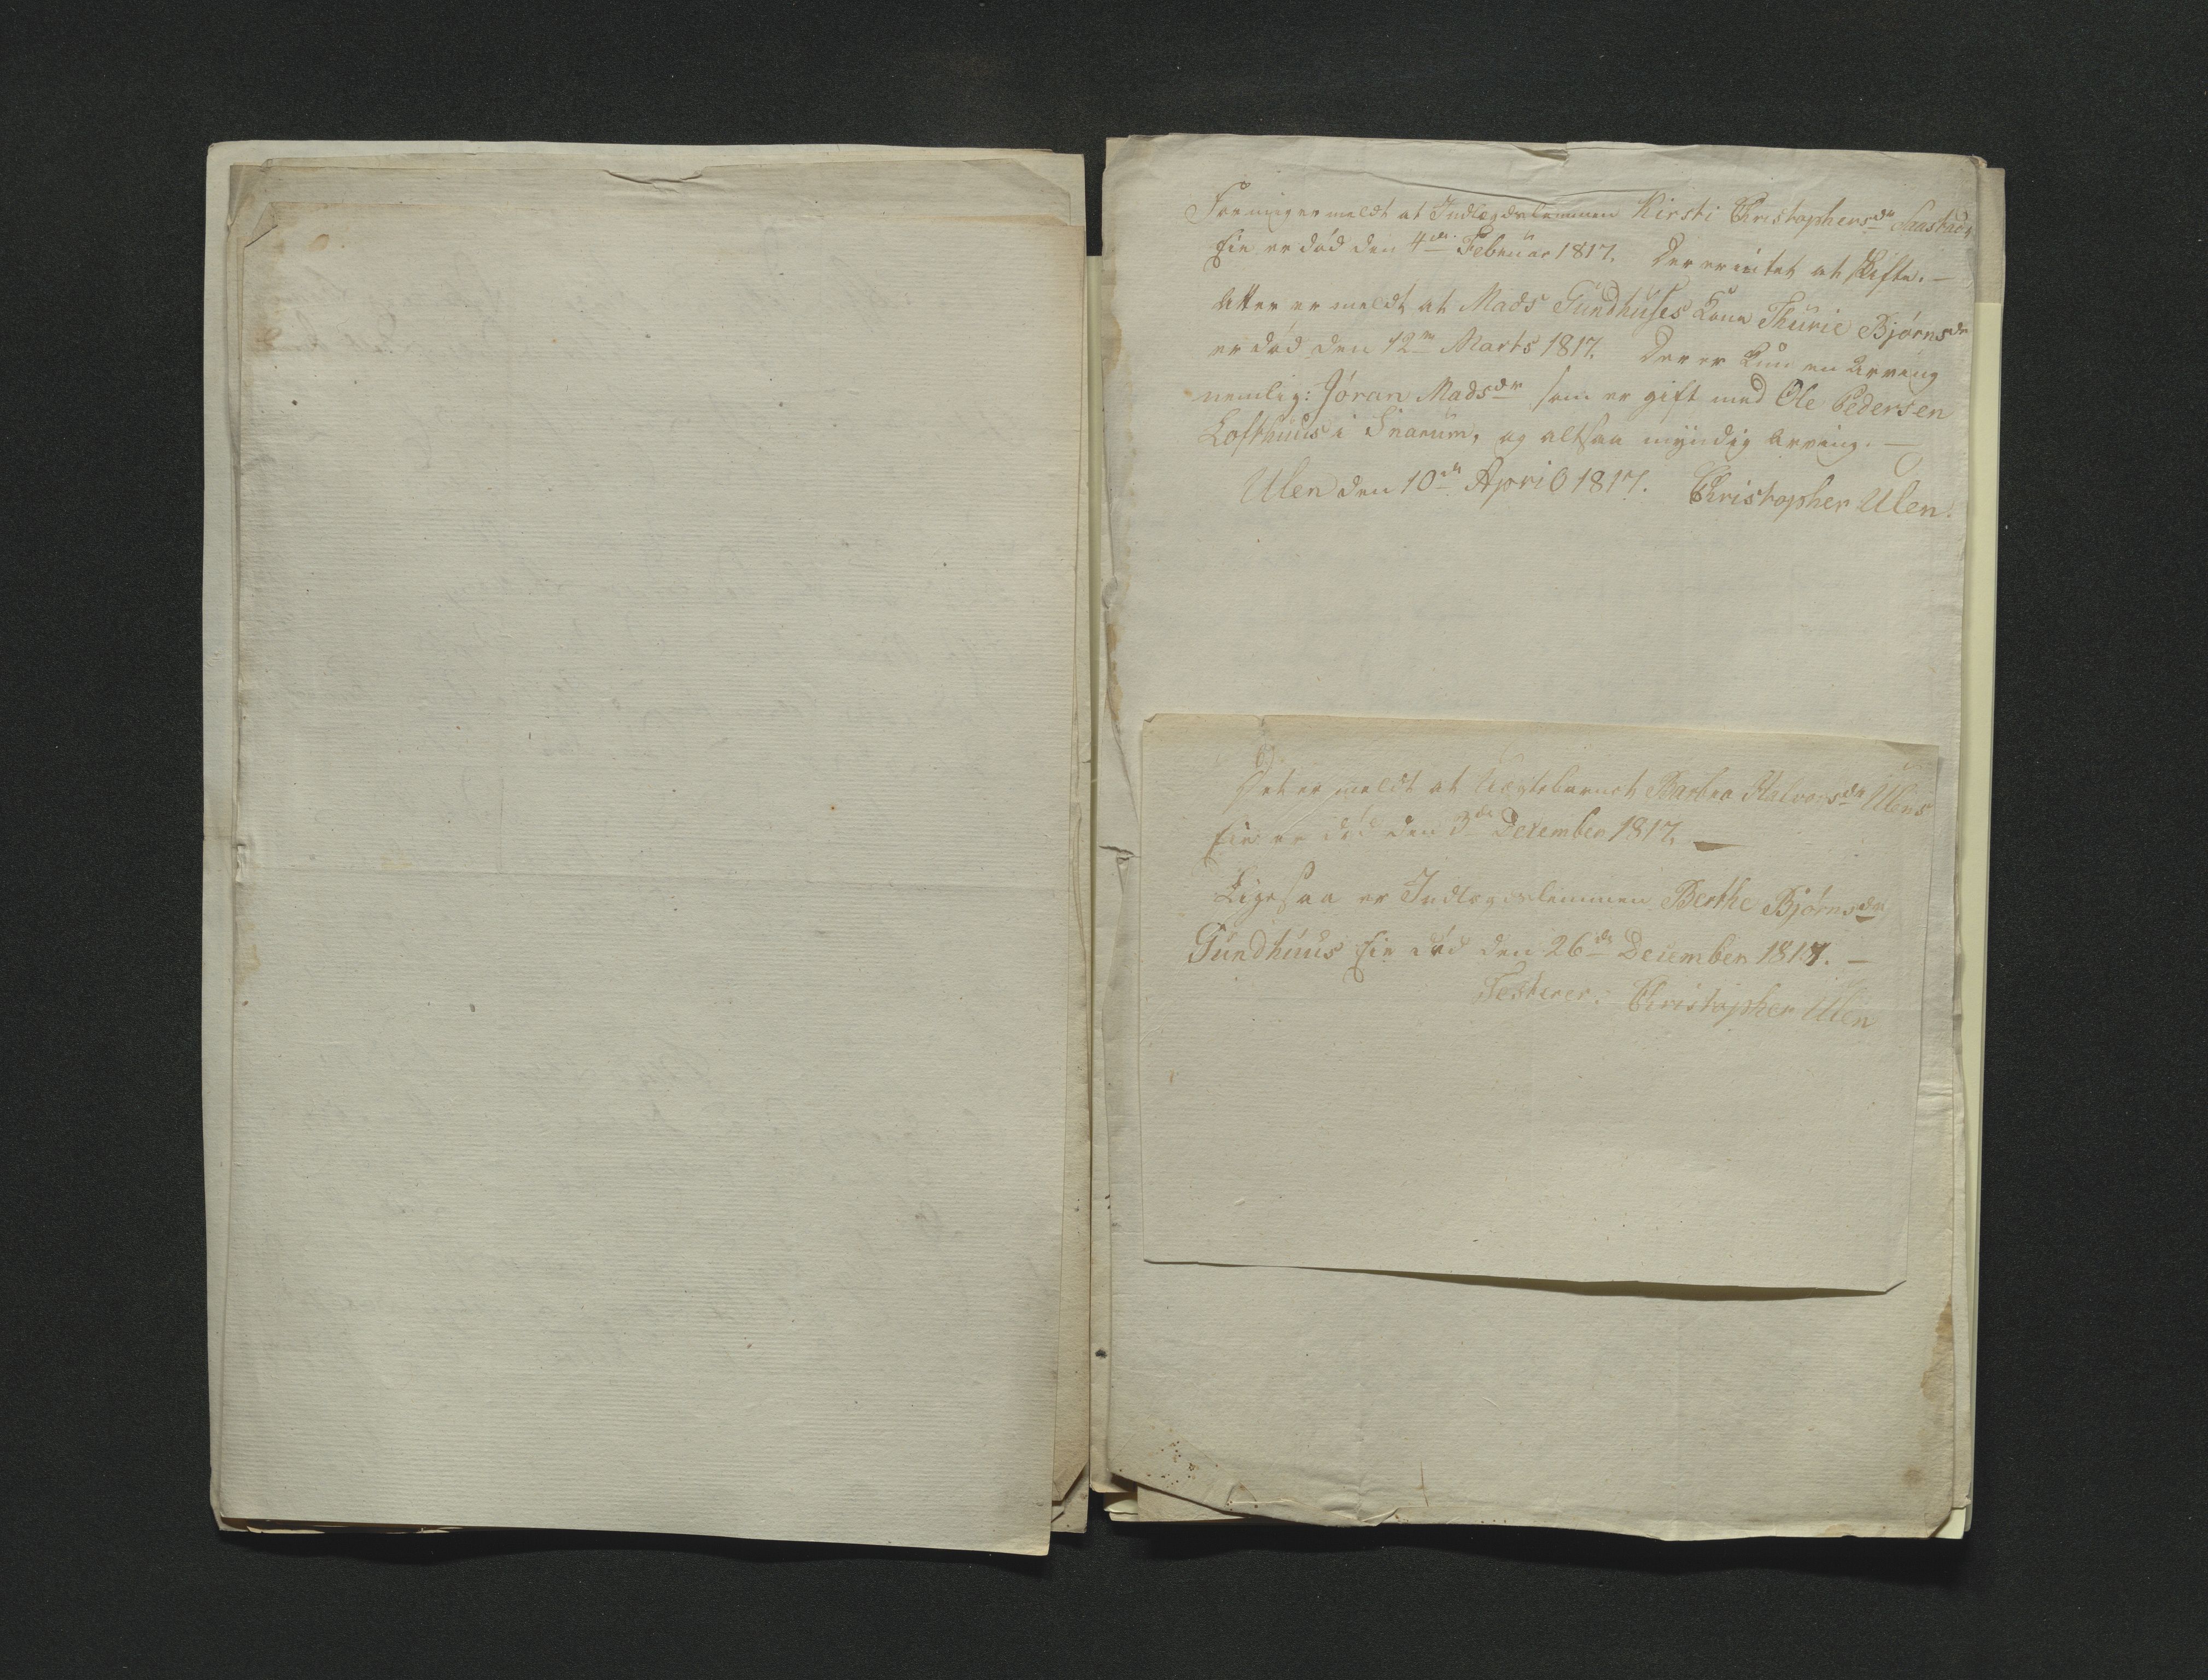 For mig er meldt at Indlægdslemmen Kirsti Christophersdr Saastad
Eie er død den 4de Februar 1817. Der er intet at skifte. —
Atter er meldt at Mads Gundhuses Kone Thurie Bjørnsdr
er død den 12te Marts 1817. Der er kun en Arving
nemlig: Jöran Madsdr som er gift med Ole Pedersen
Lofthuus i Snarum, og altsaa myndig Arving. —
Ulen den 10de April 1817. Christopher Ulen.
Det er meldt at Uægtebarnet Barbra Halvorsdr Ulens
Eie er død den 3de December 1817. —
Ligesaa er Indlægdslemmen Berthe Bjørnsdr
Gundhuus Eie död den 26de December 1817. —
Testerer: Christopher Ulen